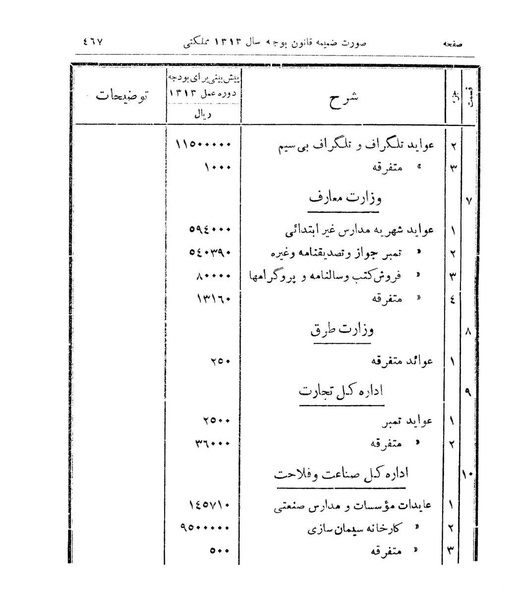 صفحه صورت ضمیمه قانون بوجه سال ۱۳۱۳ مملکتی ٤٦٧
قسمت جزء شرح پیش بینی برای بودجه دوره عمل ۱۳۱۳ توضیحات
ریال
۲ عواید تلگراف و تلگراف بی سیم ۱۱۵۰۰۰۰۰
۳ » متفرقه ۱۰۰۰
۷ وزارت معارف
۱ عواید شهریه مدارس غیر ابتدائی ۵۹٤۰۰۰
۲ » تمبر جواز و تصدیقنامه وغیره ۵٤۰۳۹۰
۳ » فروش کتب وسالنامه و پروگرامها ۸۰۰۰۰
٤ » متفرقه ۱۳۱٦۰
۸ وزارت طرق
۱ عوائد متفرقه ۲۵۰
۹ اداره کل تجارت
۱ عواید تمبر ۲۵۰۰
۲ » متفرقه ۳٦۰۰۰
۱۰ اداره کل صناعت وفلاحت
۱ عایدات مؤسسات و مدارس صنعتی ۱٤۵۷۱۰
۲ » کارخانه سیمان سازی ۹۵۰۰۰۰۰
۳ » متفرقه ۵۰۰